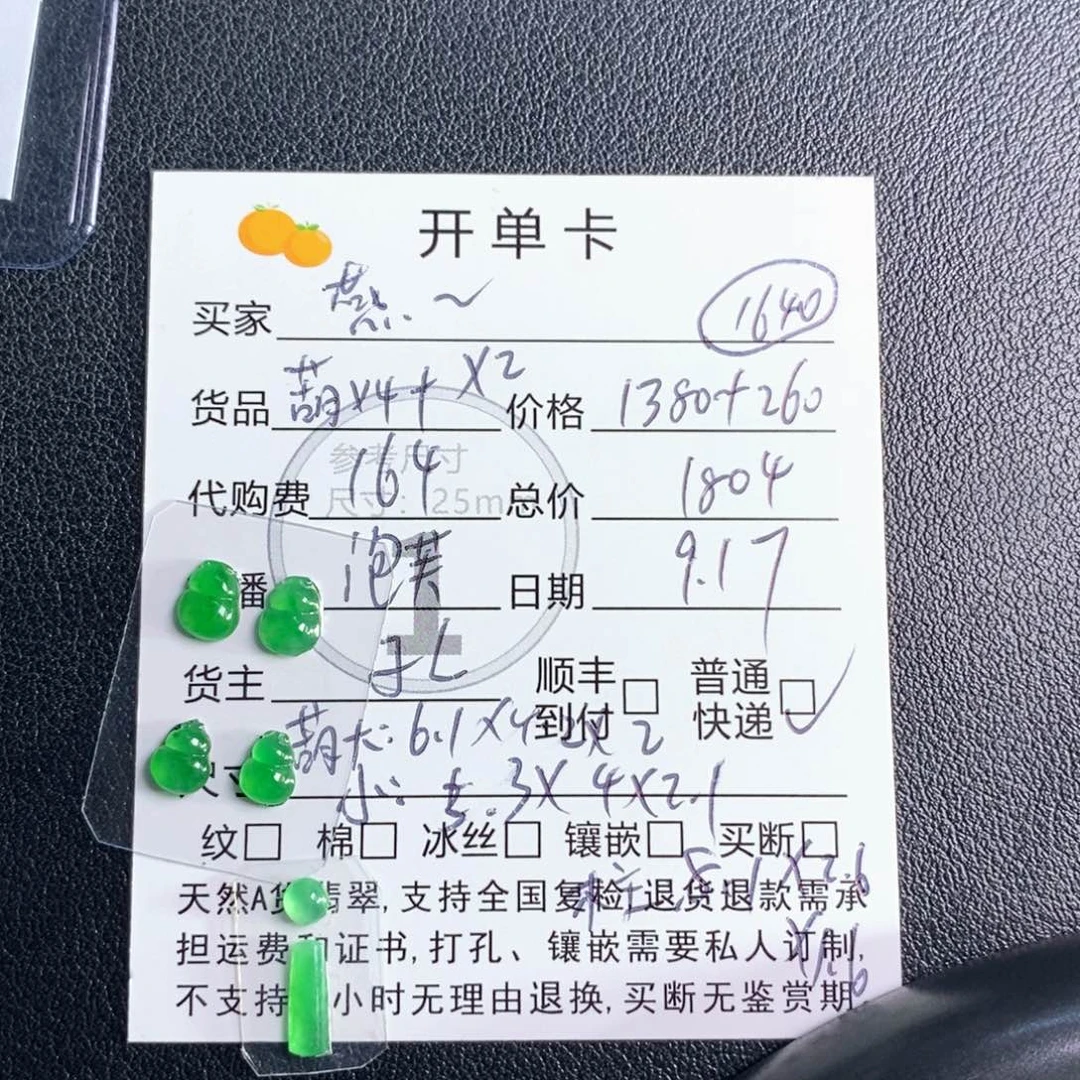 开单卡
买家 燕~ 1640
货品 葫x4+ x2 价格 1380+260
参考尺寸
代购费 164 总价 1804
尺寸: 25m
播 泡芙 日期 9.17
1
货主 顺丰到付□ 普通快递□✓
葫大: 6.1x4.2x2
小: 5.3x4x2.1
纹□ 棉□ 冰丝□ 镶嵌□ 买断□
x2.6
天然A货翡翠,支持全国复检,退货退款需承
担运费和证书,打孔、镶嵌需要私人订制,
不支持 小时无理由退换,买断无鉴赏期